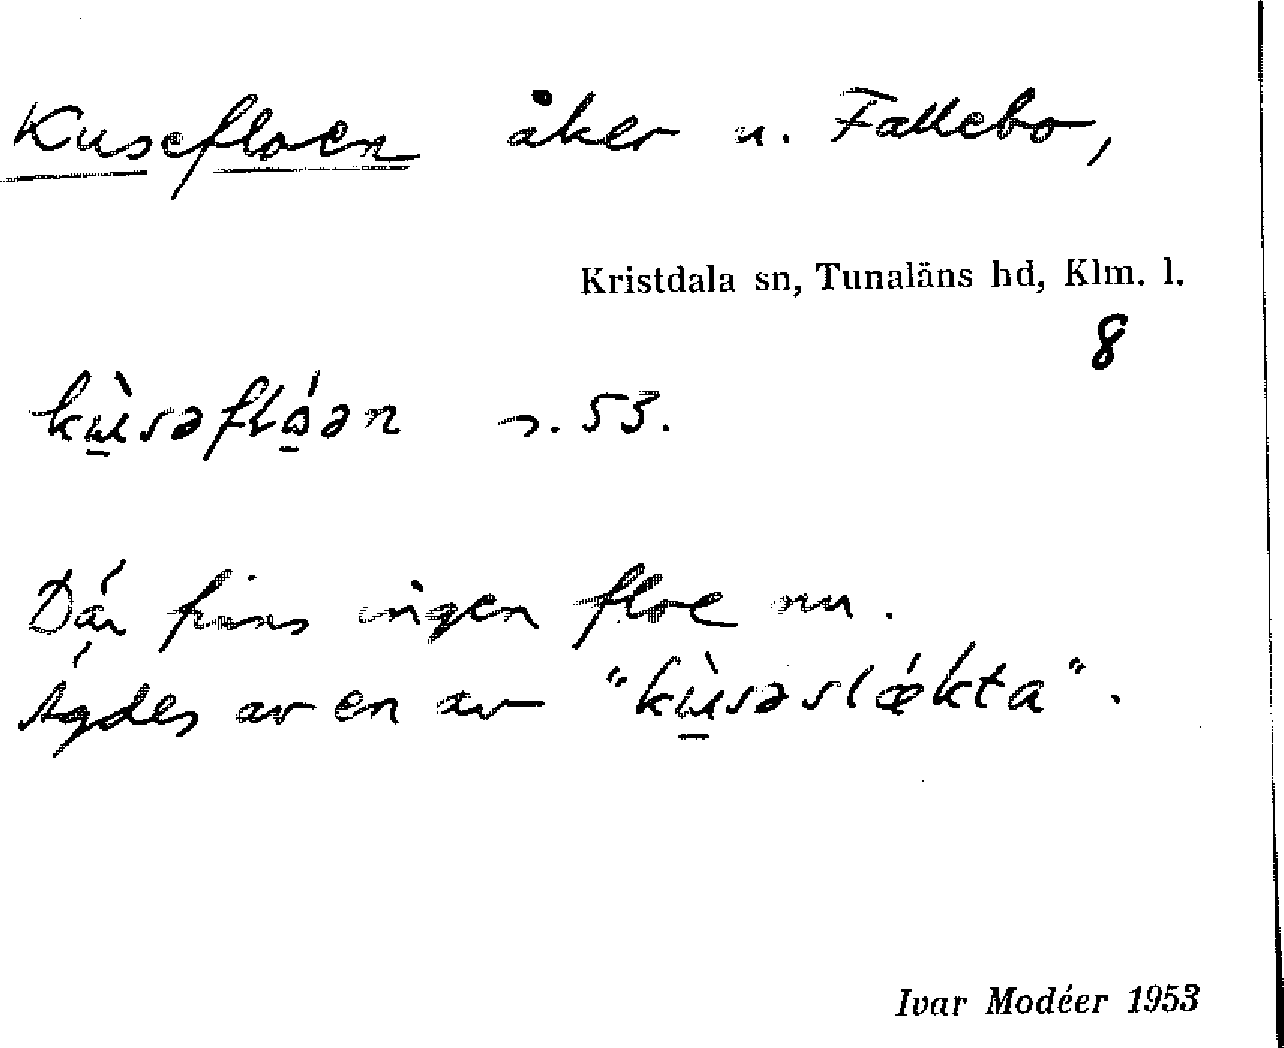 Kusefloen åker u. Fallebo,
Kristdala sn, Tunaläns hd, Klm. l.
8
kùsəflóən s. 53.
Där finns ingen floe nu.
Ägdes av en av "kùsəslǽkta".
Ivar Modéer 1953